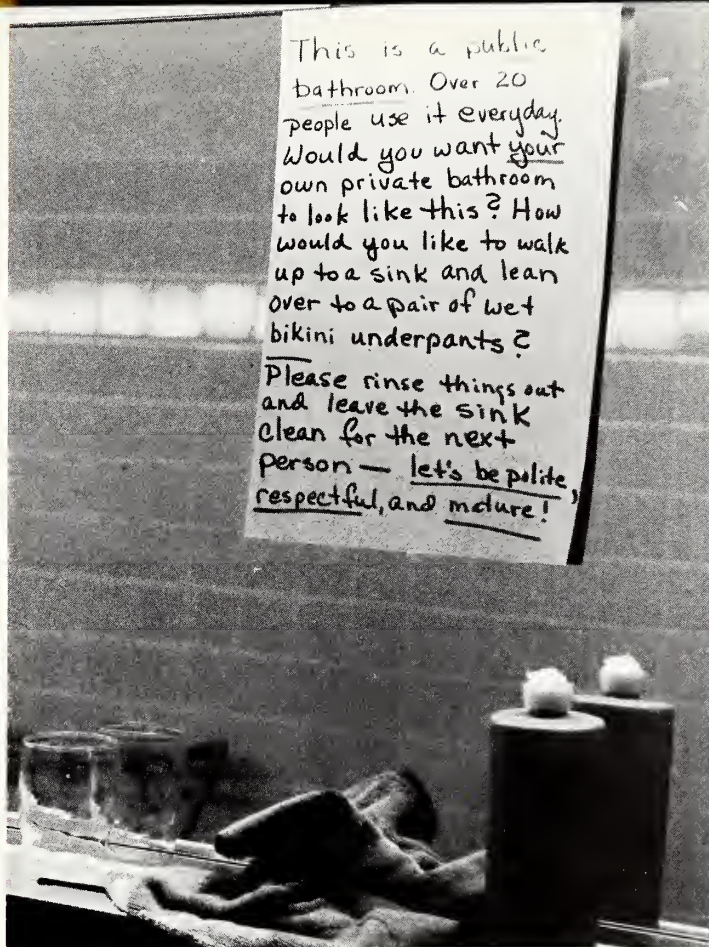 This is a public
bathroom. Over 20
people use it everyday.
Would you want your
own private bathroom
to look like this? How
would you like to walk
up to a sink and lean
over to a pair of wet
bikini underpants?
Please rinse things out
and leave the sink
clean for the next
person — let's be polite,
respectful, and mature!